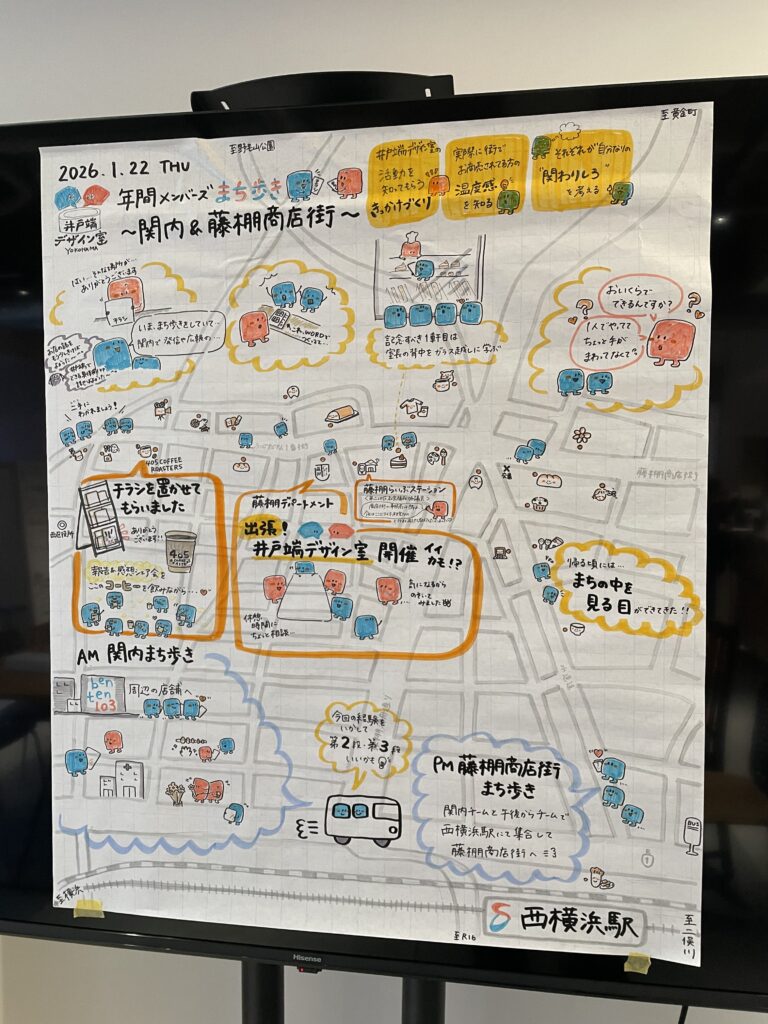 至野毛山公園
至黄金町
2026.1.22 THU
年間メンバーズまち歩き
井戸端
デザイン室
YOKOHAMA
〜関内&藤棚商店街〜
井戸端デザイン室の
活動を
知ってもらう
きっかけづくり
実際に街で
お商売されてる方の
温度感
を知る
それぞれが自分なりの
"関わりしろ"
を考える
ありがとうございます
チラシ
いま、まち歩きをしていて…
関内で発信や広報の…
記念すべき1軒目は
室長の背中をガラス越しに学ぶ
おいくらで
できるんですか?
1人でやってて
ちょっと手が
まわってなくて。
二手に
わかれましょう!
405 COFFEE
ROASTERS
藤棚商店街
チラシを置かせて
もらいました
ありがとう
ございます!!
405
報告&感想シェア会を
このコーヒーを飲みながら…
西区役所
藤棚デパートメント
藤棚らいぶステーション
出張!
井戸端デザイン室 開催 イイ
カモ!?
休憩
時間に
ちょっと相談…
気になるから
のぞいて
みました
帰る頃には…
まちの中を
見る目ができてきた!!
水道道
AM 関内まち歩き
benten103
周辺の店舗へ
今回の経験を
いかして
第2段・第3段
いいかも
PM 藤棚商店街
まち歩き
関内チームと午後からチームで
西横浜駅にて集合して
藤棚商店街へ
BUS
至横浜
西横浜駅
至二俣川
至R16
Hisense